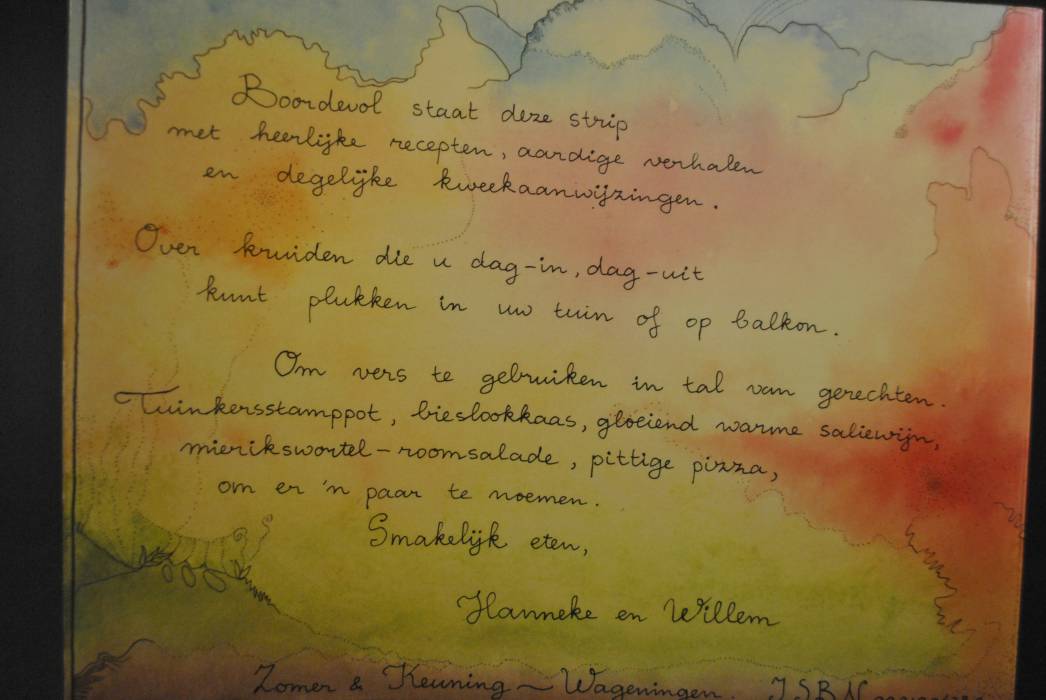 Boordevol staat deze strip
met heerlijke recepten, aardige verhalen
en degelijke kweekaanwijzingen.
Over kruiden die u dag-in, dag-uit
kunt plukken in uw tuin of op balkon.
Om vers te gebruiken in tal van gerechten.
Tuinkersstamppot, bieslookkaas, gloeiend warme saliewijn,
mierikswortel-roomsalade, pittige pizza,
om er 'n paar te noemen.
Smakelijk eten,
Hanneke en Willem
Zomer & Keuning - Wageningen. ISBN